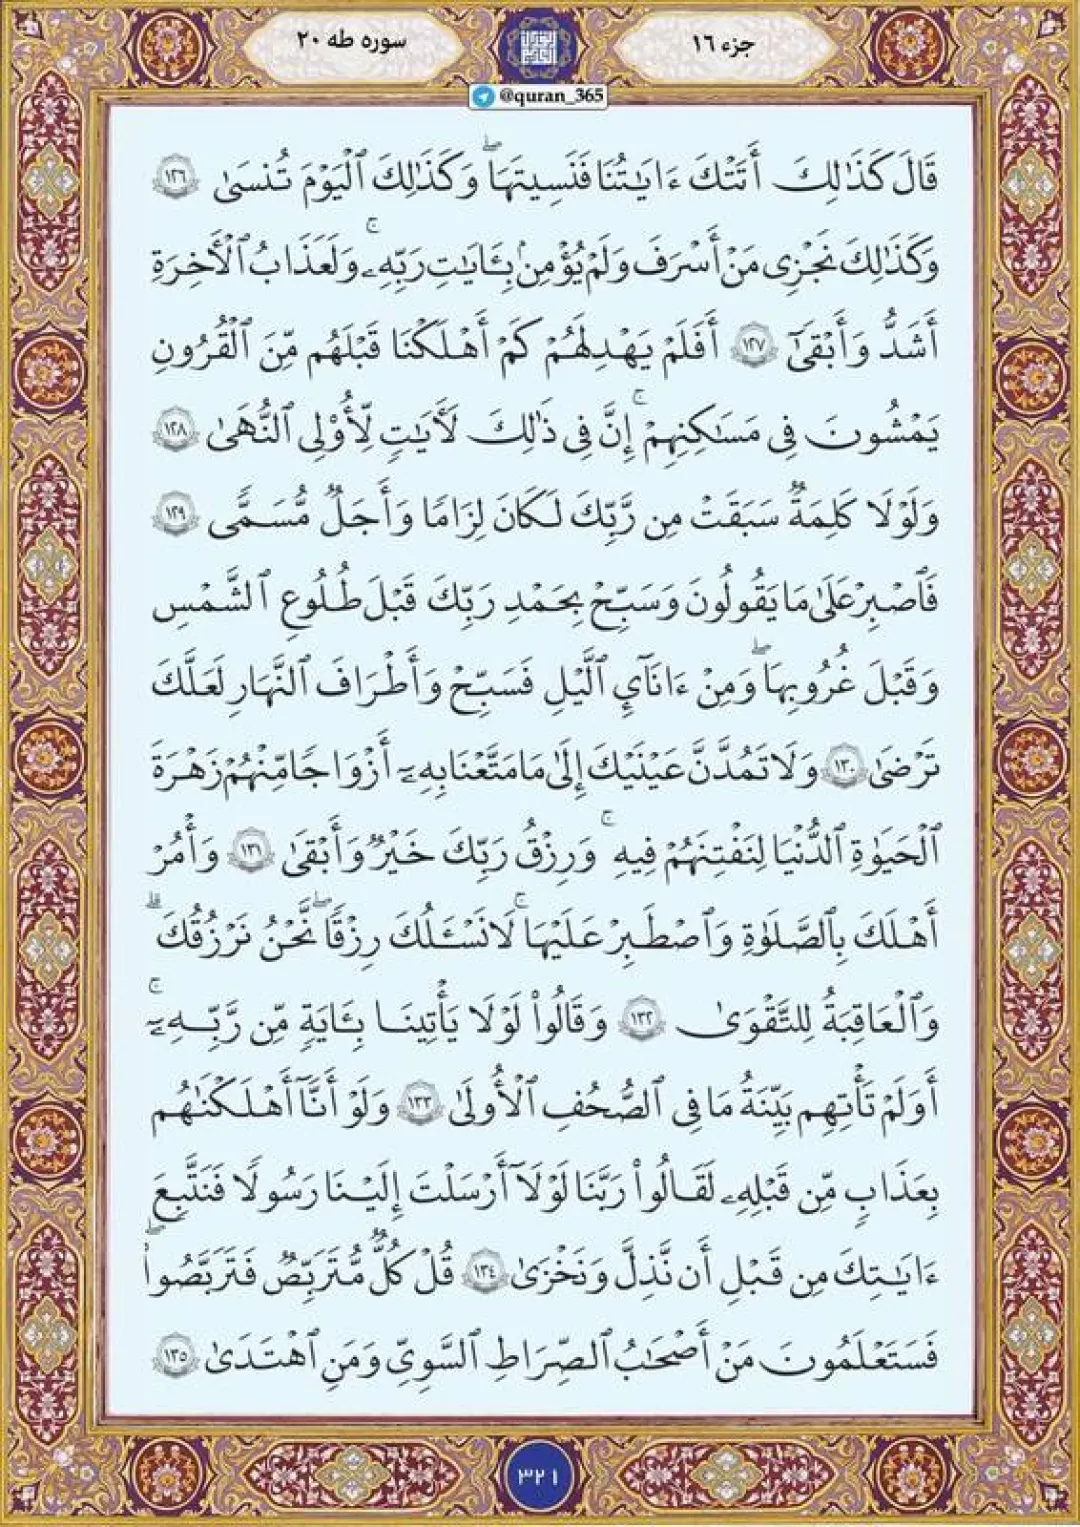 جزء ١٦
سوره طه ٢٠
@quran_365
قَالَ كَذَٰلِكَ أَتَتْكَ ءَايَٰتُنَا فَنَسِيتَهَا ۖ وَكَذَٰلِكَ ٱلْيَوْمَ تُنسَىٰ ١٢٦
وَكَذَٰلِكَ نَجْزِى مَنْ أَسْرَفَ وَلَمْ يُؤْمِنۢ بِـَٔايَٰتِ رَبِّهِۦ ۚ وَلَعَذَابُ ٱلْأَخِرَةِ
أَشَدُّ وَأَبْقَىٰٓ ١٢٧ أَفَلَمْ يَهْدِ لَهُمْ كَمْ أَهْلَكْنَا قَبْلَهُم مِّنَ ٱلْقُرُونِ
يَمْشُونَ فِى مَسَٰكِنِهِمْ ۗ إِنَّ فِى ذَٰلِكَ لَأَيَٰتٍ لِّأُو۟لِى ٱلنُّهَىٰ ١٢٨
وَلَوْلَا كَلِمَةٌ سَبَقَتْ مِن رَّبِّكَ لَكَانَ لِزَامًا وَأَجَلٌ مُّسَمًّى ١٢٩
فَٱصْبِرْ عَلَىٰ مَا يَقُولُونَ وَسَبِّحْ بِحَمْدِ رَبِّكَ قَبْلَ طُلُوعِ ٱلشَّمْسِ
وَقَبْلَ غُرُوبِهَا ۖ وَمِنْ ءَانَآئِ ٱلَّيْلِ فَسَبِّحْ وَأَطْرَافَ ٱلنَّهَارِ لَعَلَّكَ
تَرْضَىٰ ١٣٠ وَلَا تَمُدَّنَّ عَيْنَيْكَ إِلَىٰ مَا مَتَّعْنَا بِهِۦٓ أَزْوَٰجًا مِّنْهُمْ زَهْرَةَ
ٱلْحَيَوٰةِ ٱلدُّنْيَا لِنَفْتِنَهُمْ فِيهِ ۚ وَرِزْقُ رَبِّكَ خَيْرٌ وَأَبْقَىٰ ١٣١ وَأْمُرْ
أَهْلَكَ بِٱلصَّلَوٰةِ وَٱصْطَبِرْ عَلَيْهَا ۖ لَا نَسْـَٔلُكَ رِزْقًا ۖ نَّحْنُ نَرْزُقُكَ ۗ
وَٱلْعَٰقِبَةُ لِلتَّقْوَىٰ ١٣٢ وَقَالُوا۟ لَوْلَا يَأْتِينَا بِـَٔايَةٍ مِّن رَّبِّهِۦٓ ۚ
أَوَلَمْ تَأْتِهِم بَيِّنَةُ مَا فِى ٱلصُّحُفِ ٱلْأُولَىٰ ١٣٣ وَلَوْ أَنَّآ أَهْلَكْنَٰهُم
بِعَذَابٍ مِّن قَبْلِهِۦ لَقَالُوا۟ رَبَّنَا لَوْلَآ أَرْسَلْتَ إِلَيْنَا رَسُولًا فَنَتَّبِعَ
ءَايَٰتِكَ مِن قَبْلِ أَن نَّذِلَّ وَنَخْزَىٰ ١٣٤ قُلْ كُلٌّ مُّتَرَبِّصٌ فَتَرَبَّصُوا۟ ۖ
فَسَتَعْلَمُونَ مَنْ أَصْحَٰبُ ٱلصِّرَٰطِ ٱلسَّوِىِّ وَمَنِ ٱهْتَدَىٰ ١٣٥
٣٢١